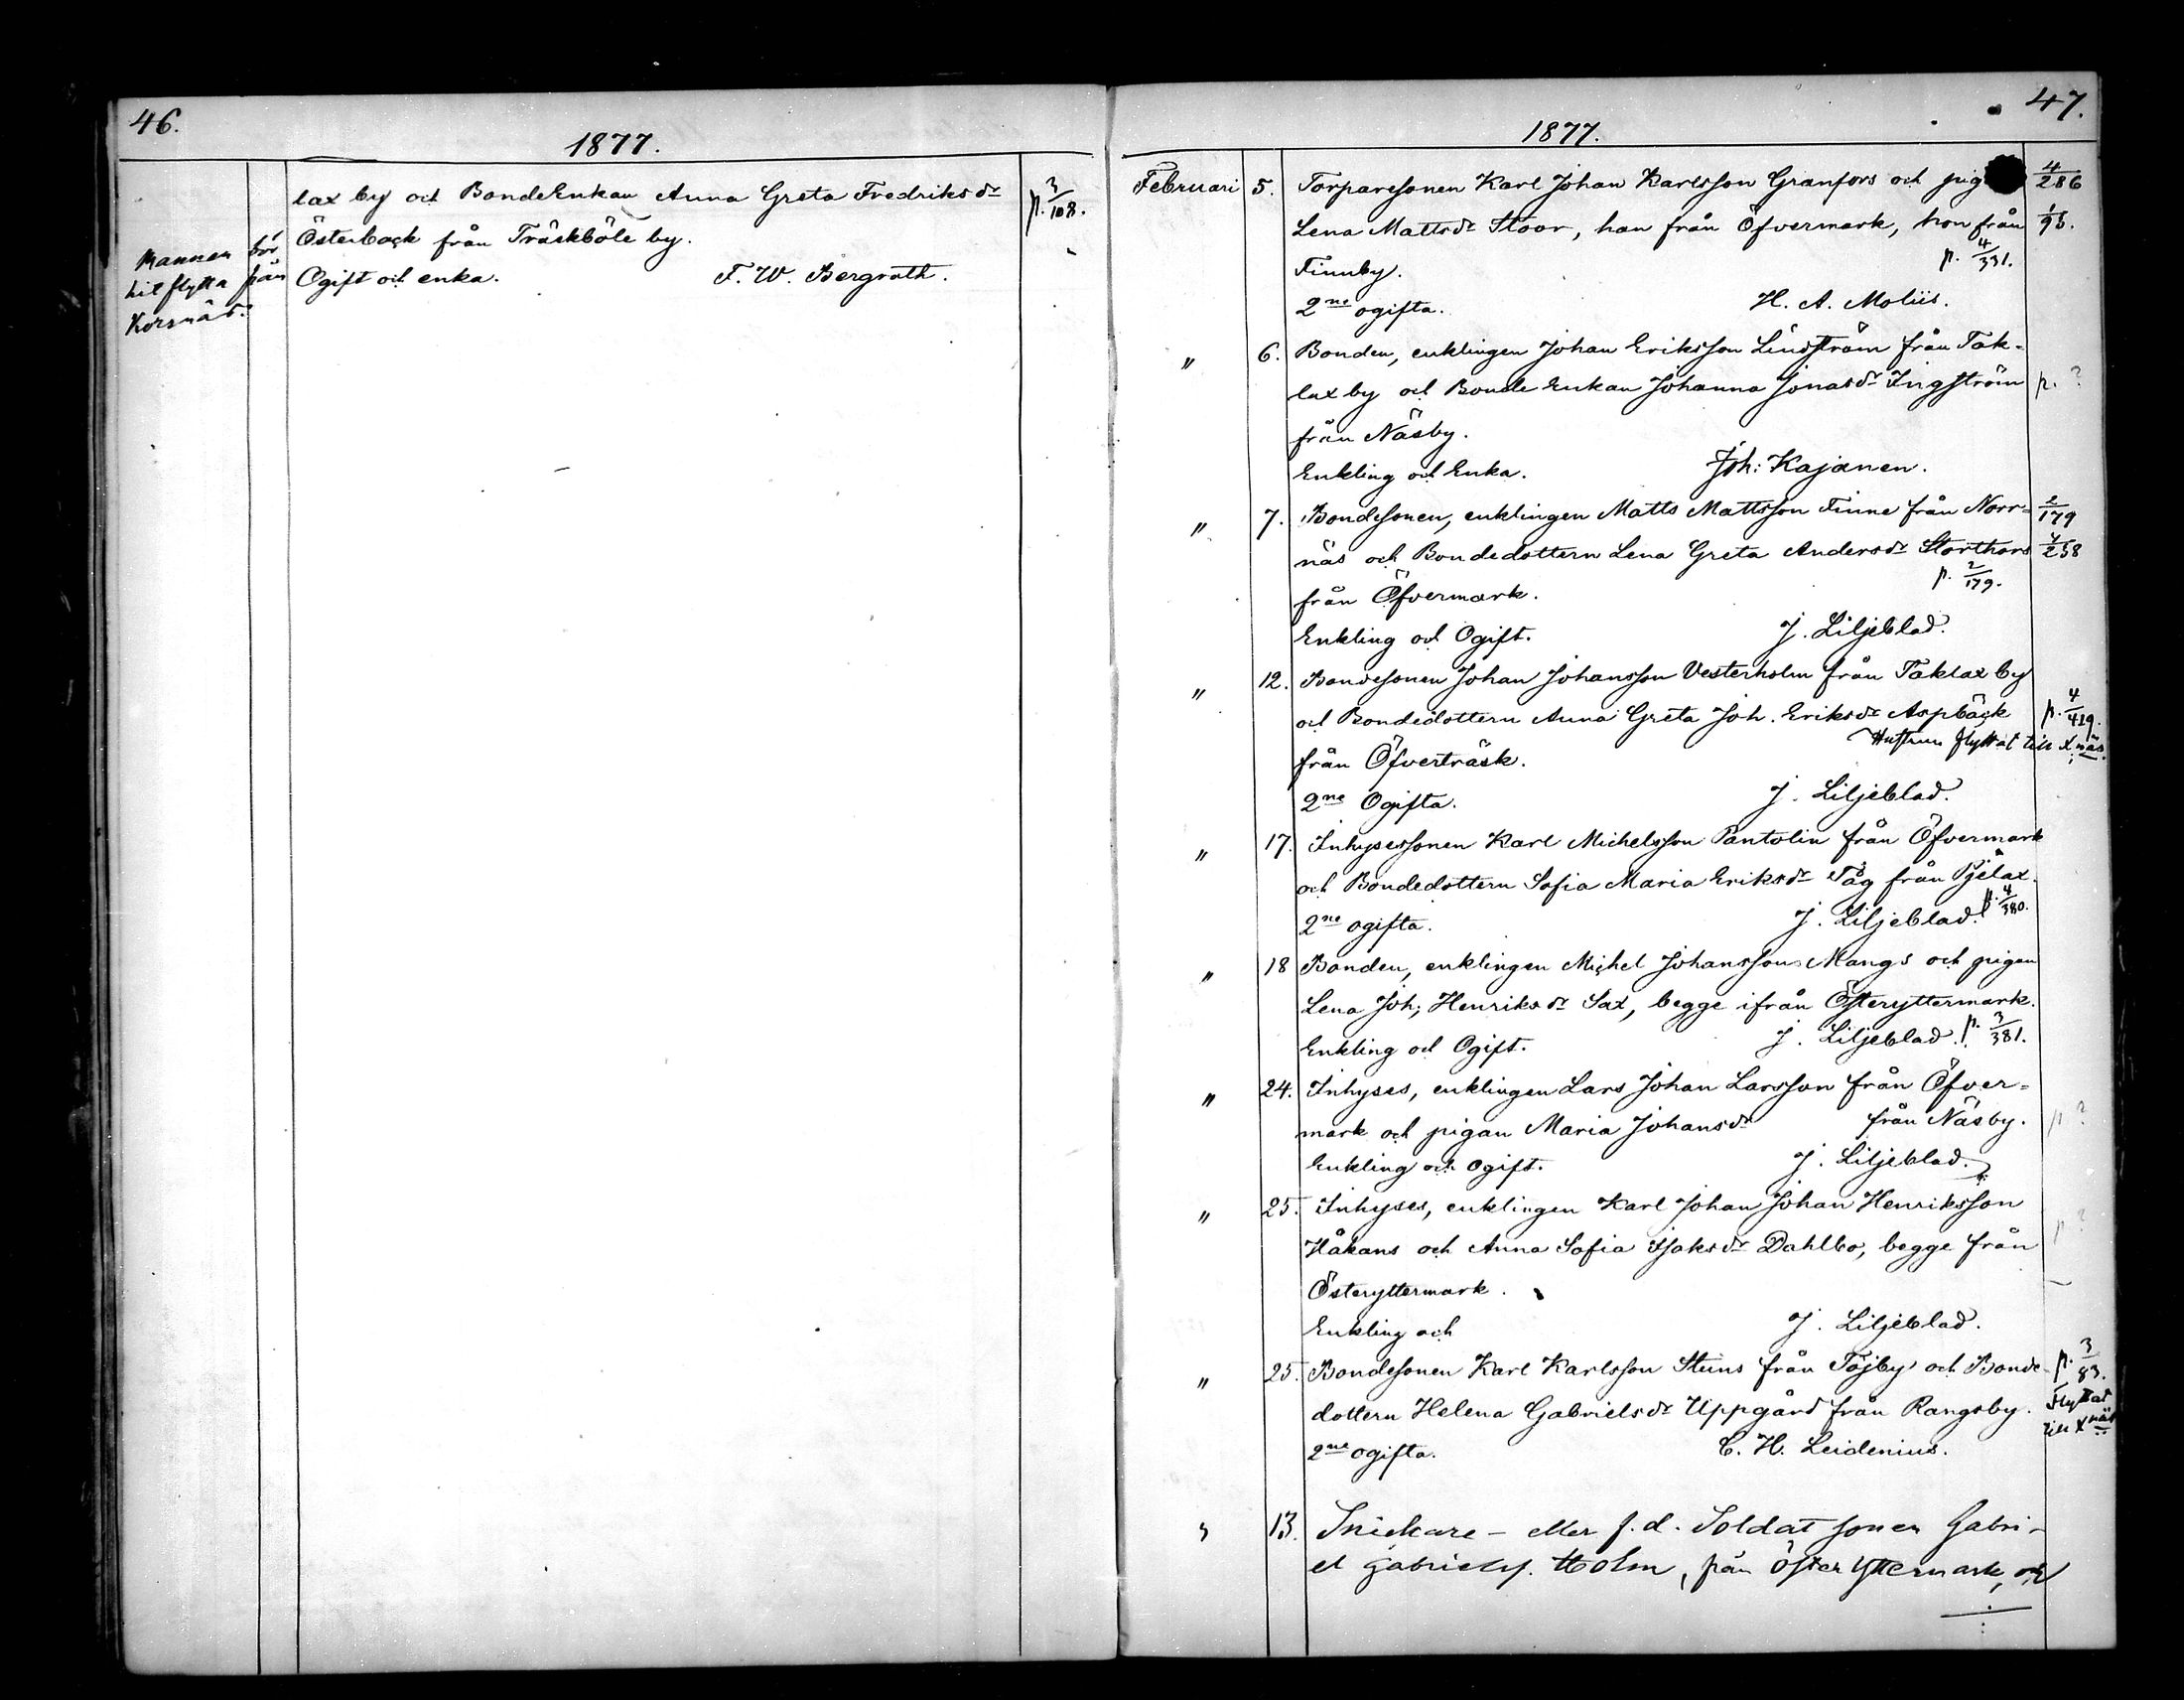 46.
1877.
lax by och BondeEnkan Anna Greta Fredriksdr
p. 3/108.
Österback från Träskböle by.
Ogift och enka. F. W. Bergroth.
Mannen bör
hitflytta från
Korsnäs.
47.
1877.
Februari 5. Torparesonen Karl Johan Karlsson Granfors och pig 4/286
Lena Mattsdr Stoor, han från Öfvermark, hon från 1/93.
Finnby. p. 4/331.
2ne ogifta. H. A. Moliis.
" 6. Bonden, enklingen Johan Eriksson Lindström från Tak-
lax by och Bonde Enkan Johanna Jonasdr Ingström p. ?
från Näsby.
Enkling och Enka. Joh: Kajanen.
" 7. Bondesonen, enklingen Matts Mattsson Finne från Norr- 2/179
näs och Bondedottern Lena Greta Andersdr Storthors 4/258
från Öfvermark. p. 2/179.
Enkling och Ogift. J. Liljeblad.
" 12. Bondesonen Johan Johansson Vesterholm från Taklax by
och Bondedottern Anna Greta Joh. Eriksdr Aspbäck p. 4/429.
från Öfverträsk. Hustrun flyttat till Xnäs.
2ne Ogifta. J. Liljeblad.
" 17. Inhysessonen Karl Michelsson Pantolin från Öfvermark
och Bondedottern Sofia Maria Eriksdr Tåg från Pjelax.
2ne ogifta. J. Liljeblad. p. 4/380.
" 18 Bonden, enklingen Michel Johansson Mangs och pigan
Lena Joh; Henriksdr Sax, begge ifrån Österyttermark.
Enkling och Ogift. J. Liljeblad. p. 3/381.
" 24. Inhyses, enklingen Lars Johan Larsson från Öfver-
mark och pigan Maria Johansdr från Näsby. p ?
Enkling och ogift. J. Liljeblad.
" 25. Inhyses, enklingen Karl Johan Johan Henriksson
Håkans och Anna Sofia Isaksdr Dahlbo, begge från p ?
Österyttermark.
Enkling och J. Liljeblad.
" 25. Bondesonen Karl Karlsson Stens från Töjby och Bonde- p. 3/83.
dottern Helena Gabrielsdr Uppgård från Rangsby. Flyttat
till Xnäs
2ne ogifta. C. H. Leidenius.
" 13. Snickare - eller f.d. Soldat sonen Gabri-
el Gabrielss. Holm, från Öster Yttermark, och